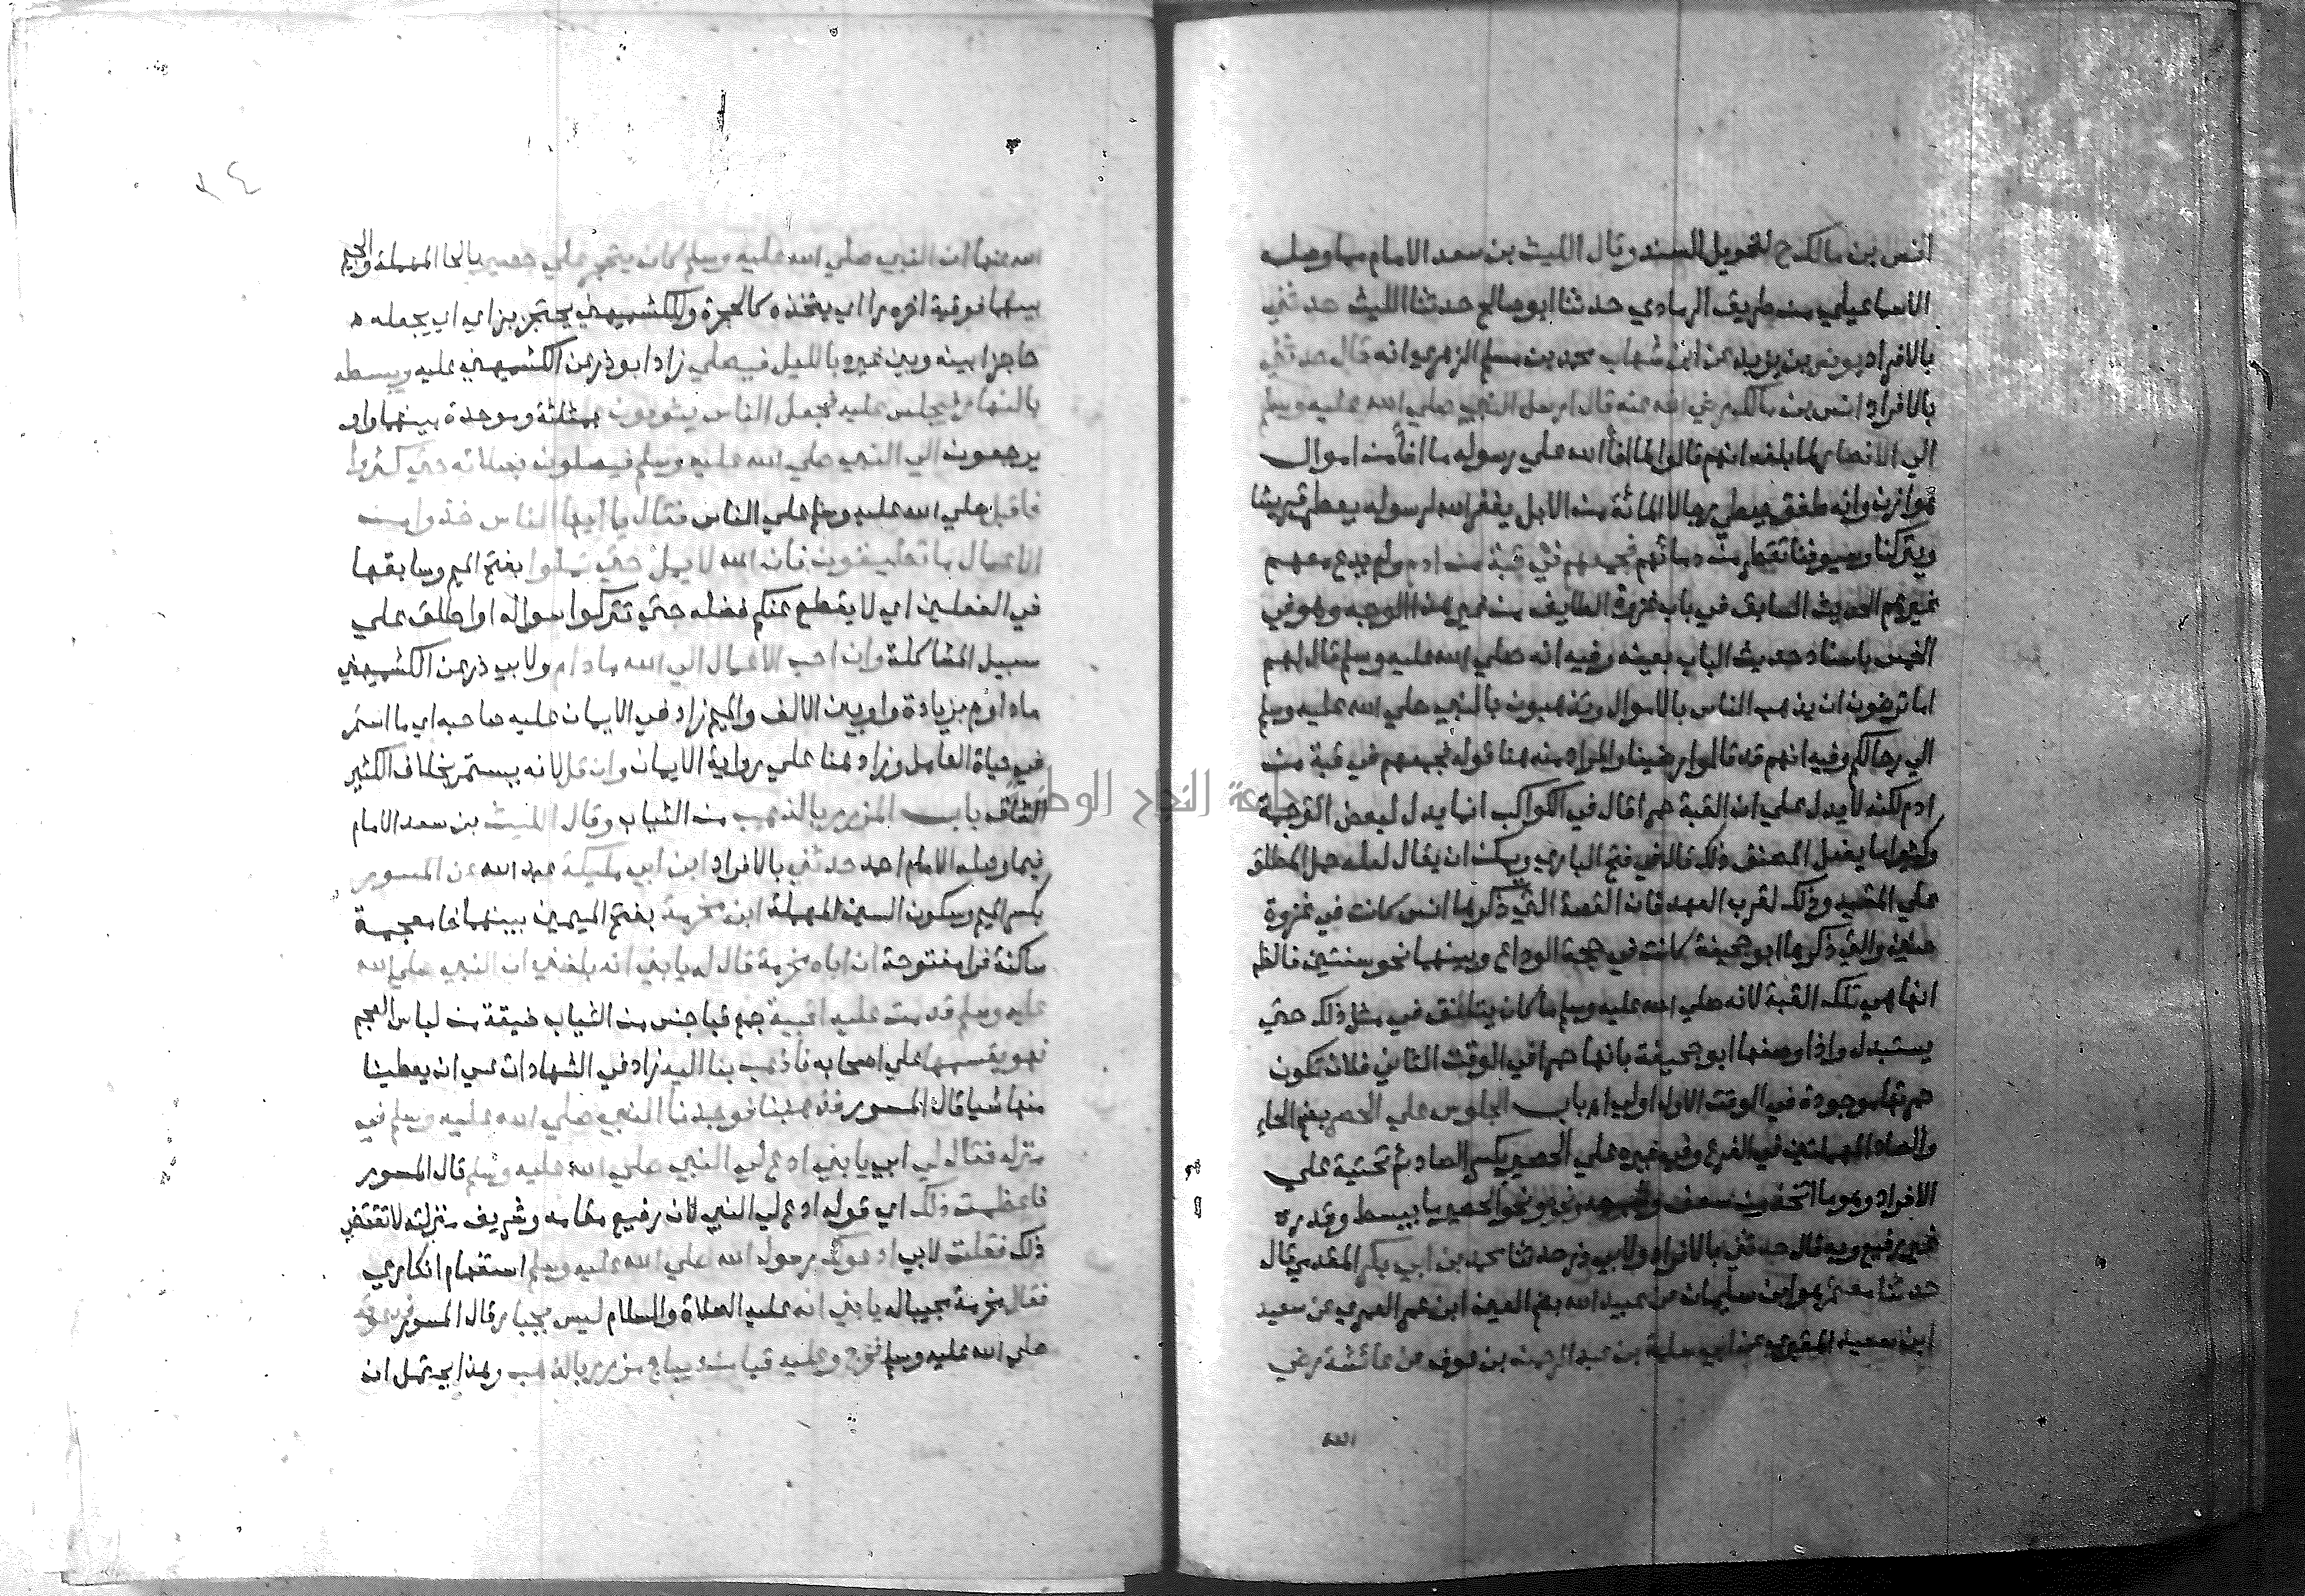 انس بن مالك ح لتحويل السند وقال الليث بن سعد الامام مما وصله
الاسماعيلي من طريق الرمادي حدثنا ابو صالح حدثنا الليث حدثني
بالافراد يونس بن يزيد عن ابن شهاب محمد بن مسلم الزهري انه قال حدثني
بالافراد انس بن مالك رضي الله عنه قال ارسل النبي صلي الله عليه وسلم
الي الانصار لما بلغه انهم قالوا لما افأ الله علي رسوله ما افأ من اموال
هوازن وانه طفق يعطي رجالا المائة من الابل يغفر الله لرسوله يعطي قريشا
ويتركنا وسيوفنا تقطر من دمائهم فجمعهم في قبة من ادم ولم يدع معهم
غيرهم الحديث السابق في باب غزوة الطايف من غير هذا الوجه وهو في
الخمس باسناد حديث الباب بعينه وفيه انه صلي الله عليه وسلم قال لهم
اما ترضون ان يذهب الناس بالاموال وتذهبون بالنبي صلي الله عليه وسلم
الي رحالكم وفيه انهم قد قالوا رضينا والمراد منه هنا قوله فجمعهم في قبة من
ادم لكنه لا يدل علي ان القبة حمرا قال في الكواكب انما يدل لبعض الترجمة
وكثيرا ما يفعل المصنف ذلك قال في فتح الباري ويمكن ان يقال لعله حمل المطلق
علي المقيد وذلك لقرب العهد فان القصة التي ذكرها انس كانت في غزوة
حنين والتي ذكرها ابو جحيفة كانت في حجة الوداع وبينهما نحو سنتين فالظ
انها هي تلك القبة لانه صلي الله عليه وسلم ما كان يتانق في مثل ذلك حتي
يستبدل واذا وصفها ابو جحيفة بانها حمرا في الوقت الثاني فلان تكون
حمرتها موجودة في الوقت الاول اولي اه باب الجلوس علي الحصر بضم الحاء
والصاد المهملتين في الفرع وفي غيره علي الحصير بكسر الصاد ثم تحتية علي
الافراد وهو ما اتخذ من سعف ونحو الحصير مما يبسط وقدره
غير رفيع وبه قال حدثني بالافراد ولابي ذر حدثنا محمد بن ابي بكر المقدمي قال
حدثنا معتمر هو ابن سليمان عن عبيد الله بضم العين ابن عمر العمري عن سعيد
ابن سعيد المقبري عن ابي سلمة بن عبد الرحمن بن عوف عن عائشة رضي
الله
٣٤
الله عنها ان النبي صلي الله عليه وسلم كان يحتجر علي حصير بالحا المهملة والجيم
بينهما فوقية اخره را اي يتخذه كالحجرة وللكشميهني يحتجز بزاي اي يجعله ه
حاجزا بينه وبين غيره بالليل فيصلي زاد ابو ذر عن الكشميهني عليه ويبسطه
بالنهار فيجلس عليه فجعل الناس يثوبون بمثلثة وموحدة بينهما واو
يرجعون الي النبي صلي الله عليه وسلم فيصلون بصلاته حتي كثروا
فاقبل صلي الله عليه وسلم علي الناس فقال يا أيها الناس خذوا من
الاعمال ما تطيقون فان الله لا يمل حتي تملوا بفتح الميم وسابقها
في الفعلين اي لا يقطع عنكم فضله حتي تتركوا سواله او اطلق علي
سبيل المشاكلة وان احب الاعمال الي الله ما دام ولابي ذر عن الكشميهني
ما داوم بزيادة واو بين الالف والميم زاد في الايمان عليه صاحبه اي ما استمر
في حياة العامل وزاد هنا علي رواية الايمان وان قل لانه يستمر بخلاف الكثير
الشاق باب المزرر بالذهب من الثياب وقال الليث بن سعد الامام
فيما وصله الامام احمد حدثني بالافراد ابن ابي مليكة عبد الله عن المسور
بكسر الميم وسكون السين المهملة ابن مخرمة بفتح الميمين بينهما خا معجمة
ساكنة فرا مفتوحة ان اباه مخرمة قال له يا بني انه بلغني ان النبي صلي الله
عليه وسلم قدمت عليه اقبية جمع قبا جنس من الثياب ضيقة من لباس العجم
فهو يقسمها علي اصحابه فاذهب بنا اليه زاد في الشهادات عسي ان يعطينا
منها شيا قال المسور فذهبنا فوجدنا النبي صلي الله عليه وسلم في
منزله فقال لي ابي يا بني ادع لي النبي صلي الله عليه وسلم قال المسور
فاعظمت ذلك اي قوله ادع لي النبي لان رفيع مقامه وشريف منزلته لا تقتضي
ذلك فقلت لابي ادعو لك رسول الله صلي الله عليه وسلم استفهام انكاري
فقال مخرمة مجيبا له يا بني انه عليه الصلاة والسلام ليس بجبار قال المسور فدعوته
صلي الله عليه وسلم فخرج وعليه قبا من ديباج مزرر بالذهب وهذا يحتمل ان
جامعة النجاح الوطنية